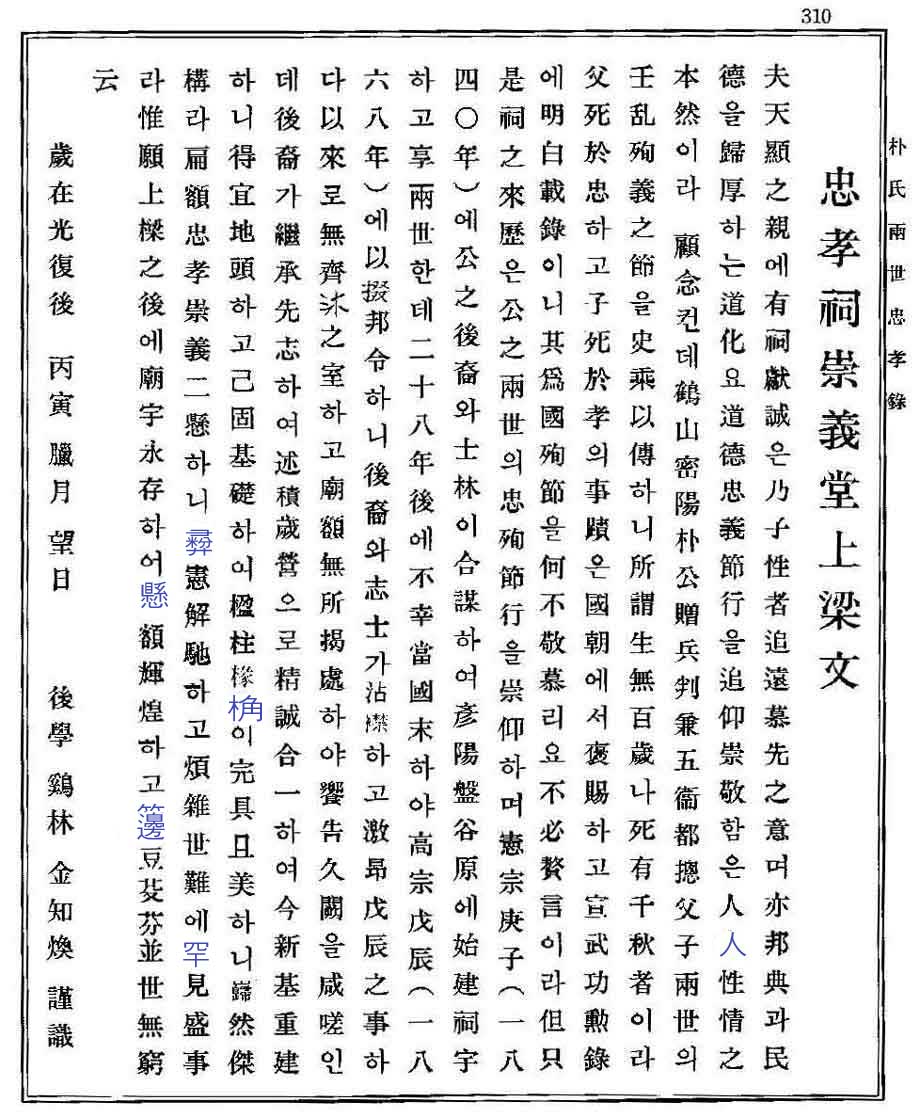 310
朴氏兩世忠孝錄
忠孝祠崇義堂上梁文
夫天顯之親에有祠獻誠은乃子性者追遠慕先之意며亦邦典과民
德을歸厚하는道化요道德忠義節行을追仰崇敬함은人人性情之
本然이라 顧念컨데鶴山密陽朴公贈兵判兼五衞都摠父子兩世의
壬乱殉義之節을史乘以傳하니所謂生無百歲나死有千秋者이라
父死於忠하고子死於孝의事蹟은國朝에서褒賜하고宣武功勲錄
에明白載錄이니其爲國殉節을何不敬慕리요不必贅言이라但只
是祠之來歷은公之兩世의忠殉節行을崇仰하며憲宗庚子(一八
四〇年)에公之後裔와士林이合謀하여彦陽盤谷原에始建祠宇
하고享兩世한데二十八年後에不幸當國末하야高宗戊辰(一八
六八年)에以掇邦令하니後裔와志士가沾襟하고激昻戊辰之事하
다以來로無齊沐之室하고廟額無所揭處하야饗告久闕을咸嗟인
데後裔가繼承先志하여述積歲營으로精誠合一하여今新基重建
하니得宜地頭하고己固基礎하이楹柱椽桷이完具且美하니巋然傑
構라扁額忠孝崇義二懸하니彛憲解馳하고煩雜世難에罕見盛事
라惟願上樑之後에廟宇永存하어懸額輝煌하고籩豆芟芬並世無窮
云
歲在光復後 丙寅 臘月 望日 後學 鷄林 金知煥 謹識